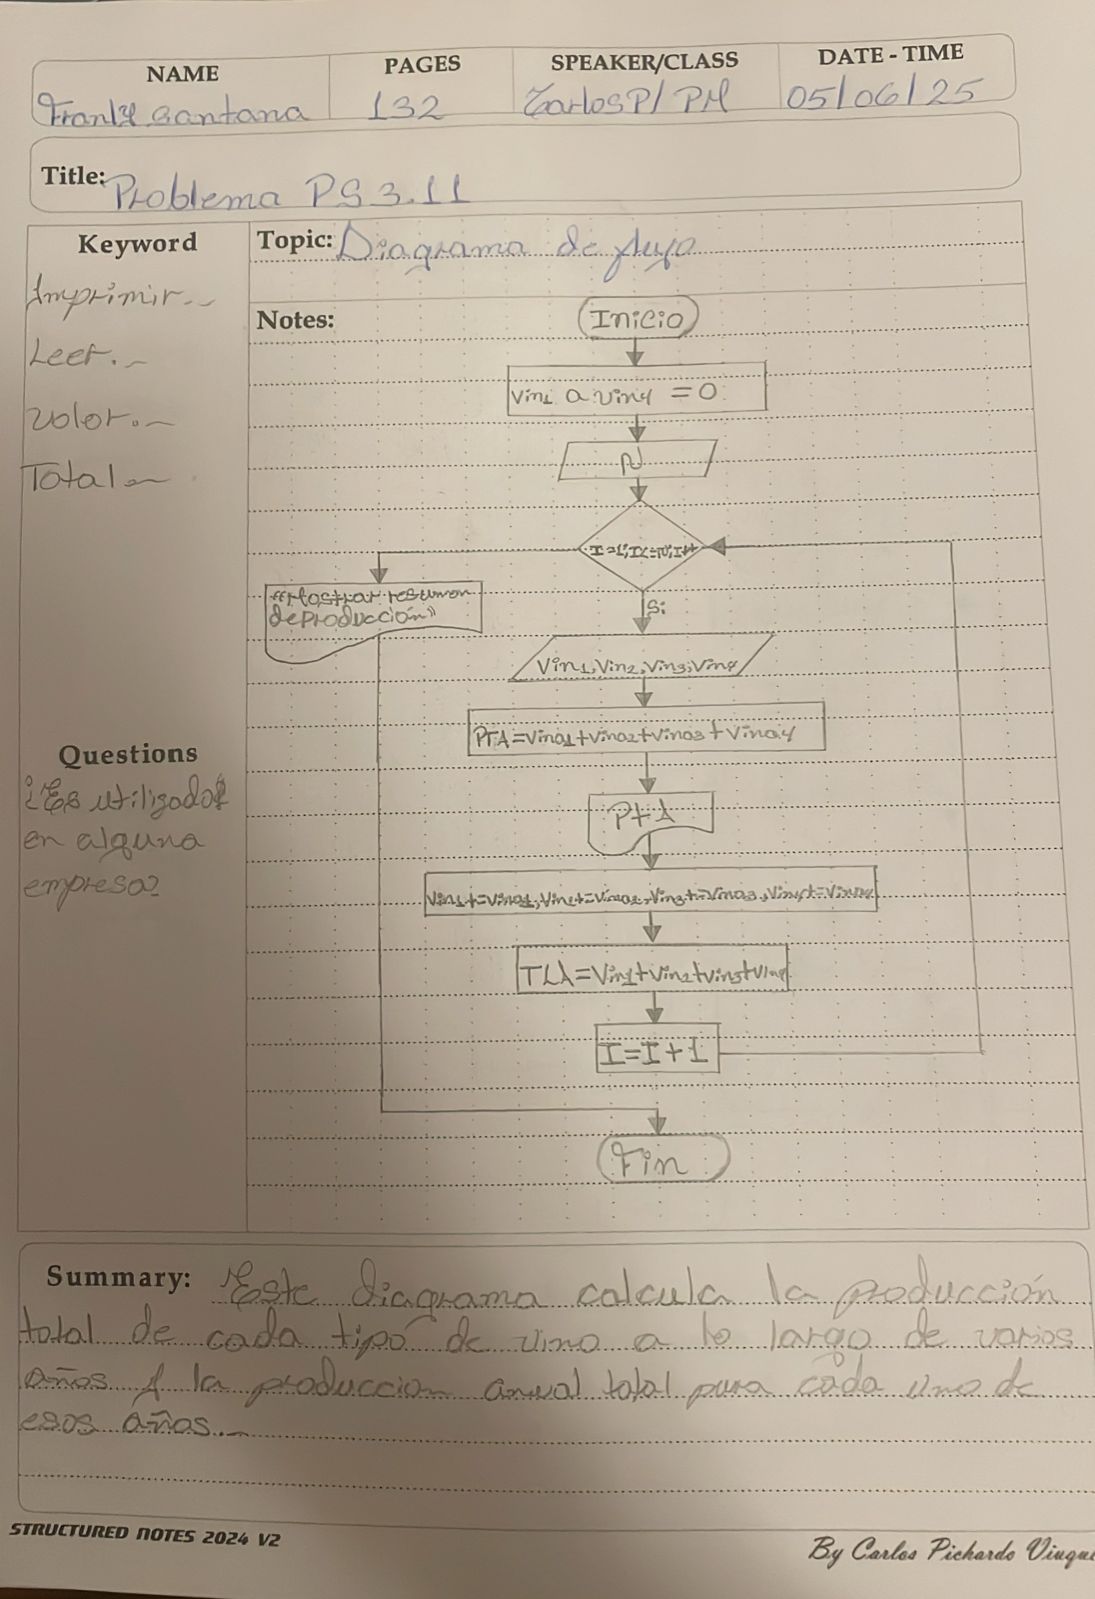 NAME
PAGES
SPEAKER/CLASS
DATE - TIME
Franly santana
132
CarlosP/ PM
05/06/25
Title: Problema PS 3.11
Keyword
Imprimir.-
Leer.-
Valor.-
Total.-
Questions
¿Es utilizado
en alguna
empresa?
Topic: Diagrama de flujo
Notes:
Inicio
Vin1 a vin4 = 0
N
I=1; I<=N; I++
Si
"Mostrar resumen
de producción"
Vin1, Vin2, Vin3, Vin4
PTA=Vina1+Vina2+Vina3+Vina4
PtA
Vin1+=Vina1, Vin2+=Vina2, Vin3+=Vina3, Vin4+=Vina4
TLA=Vin1+Vin2+Vin3+Vin4
I=I+1
Fin
Summary: Este diagrama calcula la producción
total de cada tipo de vino a lo largo de varios
años y la produccion anual total para cada uno de
esos años.-
STRUCTURED NOTES 2024 V2
By Carlos Pichardo Viuque